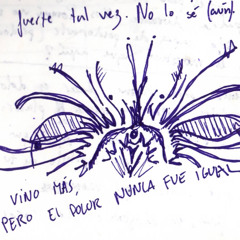 fuerte tal vez. No lo sé (aún).
VINO MÁS,
PERO EL DOLOR NUNCA FUE IGUAL